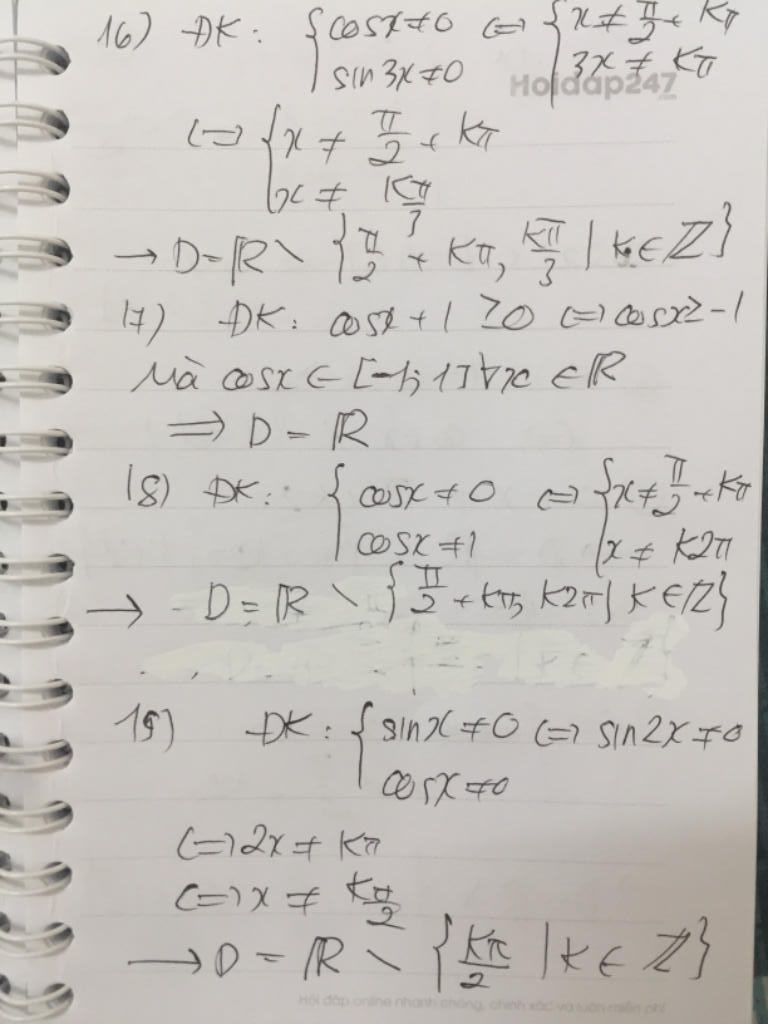 16) ĐK: { cosx ≠ 0 <=> { x ≠ π/2 + kπ
sin3x ≠ 0 3x ≠ kπ
Hoidap247
<=> { x ≠ π/2 + kπ
x ≠ kπ/3
→ D = ℝ \ { π/2 + kπ, kπ/3 | k ∈ ℤ }
17) ĐK: cosx + 1 ≥ 0 <=> cosx ≥ -1
Mà cosx ∈ [-1; 1] ∀x ∈ ℝ
=> D = ℝ
18) ĐK: { cosx ≠ 0 <=> { x ≠ π/2 + kπ
cosx ≠ 1 x ≠ k2π
→ D = ℝ \ { π/2 + kπ, k2π | k ∈ ℤ }
19) ĐK: { sinx ≠ 0 <=> sin2x ≠ 0
cosx ≠ 0
<=> 2x ≠ kπ
<=> x ≠ kπ/2
→ D = ℝ \ { kπ/2 | k ∈ ℤ }
Hỏi đáp online nhanh chóng, chính xác và luôn miễn phí